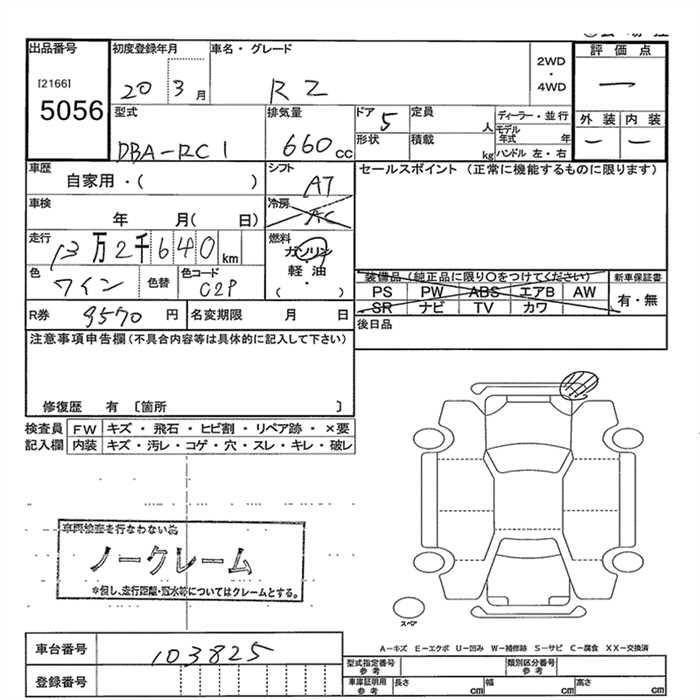 出品番号 初度登録年月 車名・グレード 2WD・4WD 評価点
[2166]
5056
20 3 月 R2 一
型式 排気量 ドア 5 定員 人 ディーラー・並行 外装 内装
DBA-RC1 660 cc 形状 積載 kg モデル年式 年 一 一
ハンドル 左・右
車歴 シフト セールスポイント (正常に機能するものに限ります)
自家用・( ) AT
車検 冷房
年 月( 日) AC
走行 13万2千640km 燃料
ガソリン
色 ワイン 色替 色コード C2P 軽油
( )
装備品(純正品に限り〇をつけてください) 新車保証書
PS PW ABS エアB AW 有・無
SR ナビ TV カワ
R券 9570 円 名変期限 月 日 後日品
注意事項申告欄(不具合内容等は具体的に記入して下さい)
修復歴 有 〔箇所 〕
検査員 FW キズ・飛石・ヒビ割・リペア跡・×要
記入欄 内装 キズ・汚レ・コゲ・穴・スレ・キレ・破レ
車両検査を行なわない為
ノークレーム
*但し、走行距離・冠水等についてはクレームとする。
スペア
A-キズ E-エクボ U-凹み W-補修跡 S-サビ C-腐食 XX-交換済
車台番号 103825
登録番号
型式指定番号 参考 類別区分番号 参考
車庫証明用 参考 長さ cm 幅 cm 高さ cm